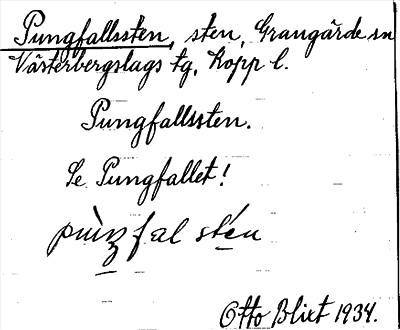 Pungfallssten, sten, Grangärde sn
Västerbergslags tg, Kopp l.
Pungfallssten.
Se Pungfallet!
pùŋfal stén
Otto Blixt 1934.